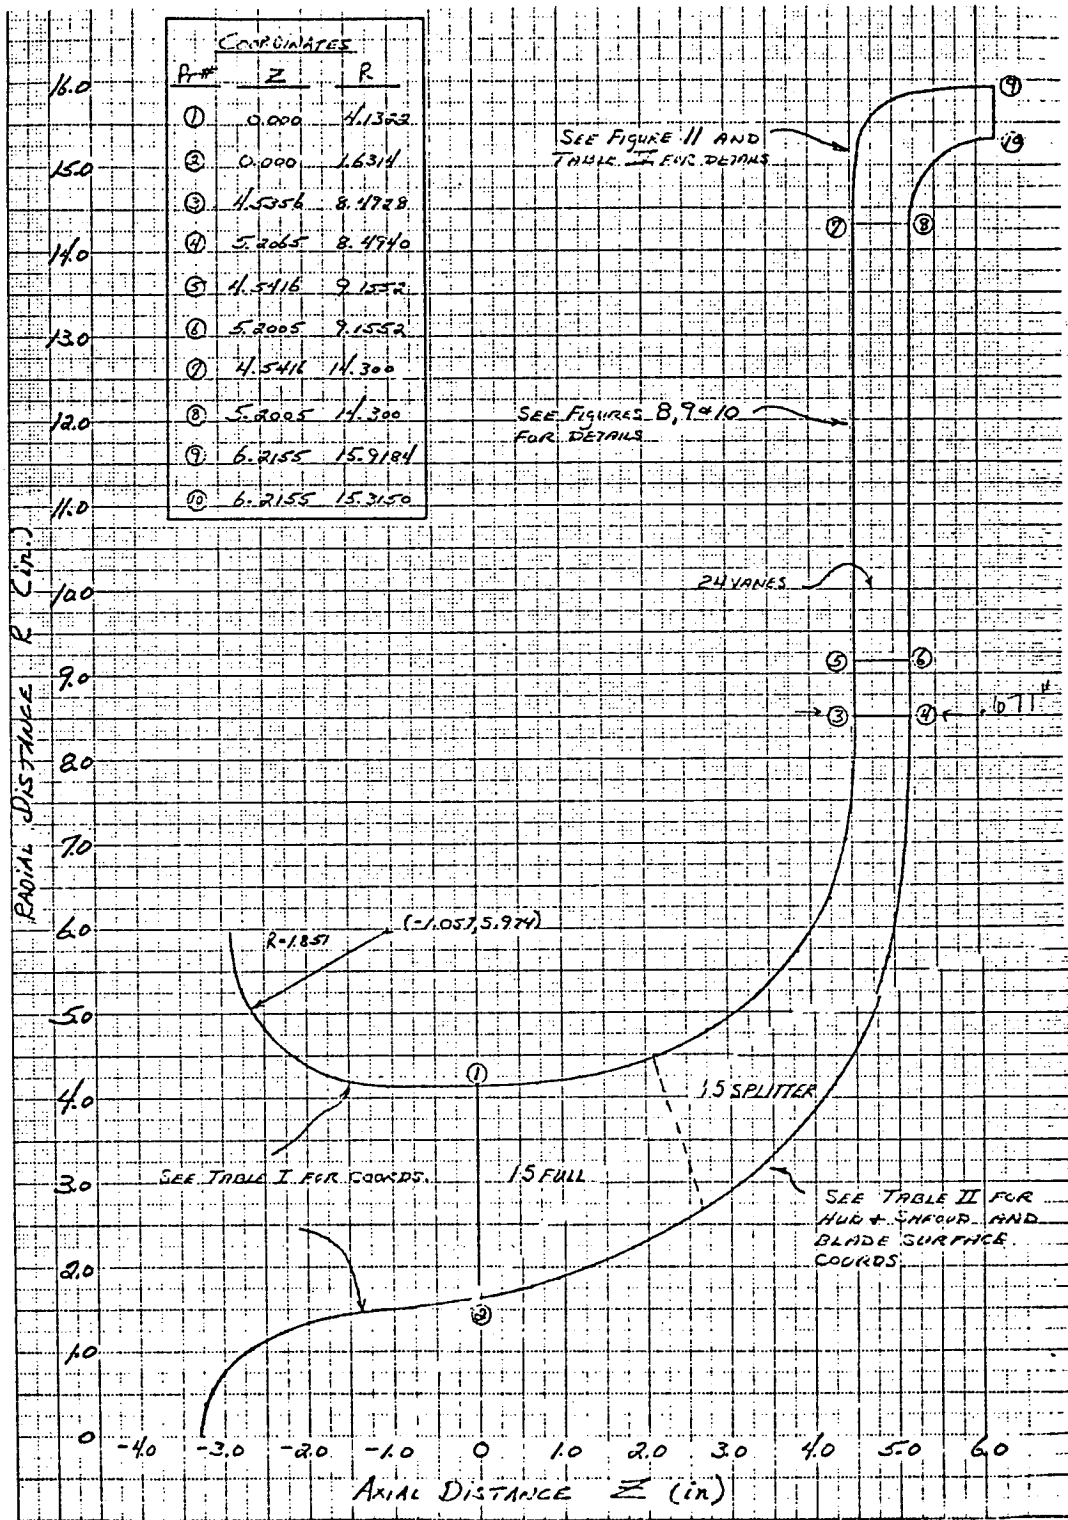 COORDINATES
Pt# Z R
① 0.000 4.1322
② 0.000 1.6314
③ 4.5356 8.4728
④ 5.2065 8.4940
⑤ 4.5416 9.1552
⑥ 5.2005 9.1552
⑦ 4.5416 14.300
⑧ 5.2005 14.300
⑨ 6.2155 15.9184
⑩ 6.2155 15.3150
16.0
15.0
14.0
13.0
12.0
11.0
10.0
9.0
8.0
7.0
6.0
5.0
4.0
3.0
2.0
1.0
0
RADIAL DISTANCE R (in.)
⑨
⑩
SEE FIGURE 11 AND
TABLE III FOR DETAILS
⑦ ⑧
SEE FIGURES 8,9&10
FOR DETAILS
24 VANES
⑤ ⑥
③ ④ .671"
(-1.057,5.974)
R=1.851
①
15 SPLITTER
SEE TABLE I FOR COORDS.
15 FULL
SEE TABLE II FOR
HUB + SHROUD AND
BLADE SURFACE
COORDS.
②
-4.0 -3.0 -2.0 -1.0 0 1.0 2.0 3.0 4.0 5.0 6.0
AXIAL DISTANCE Z (in)